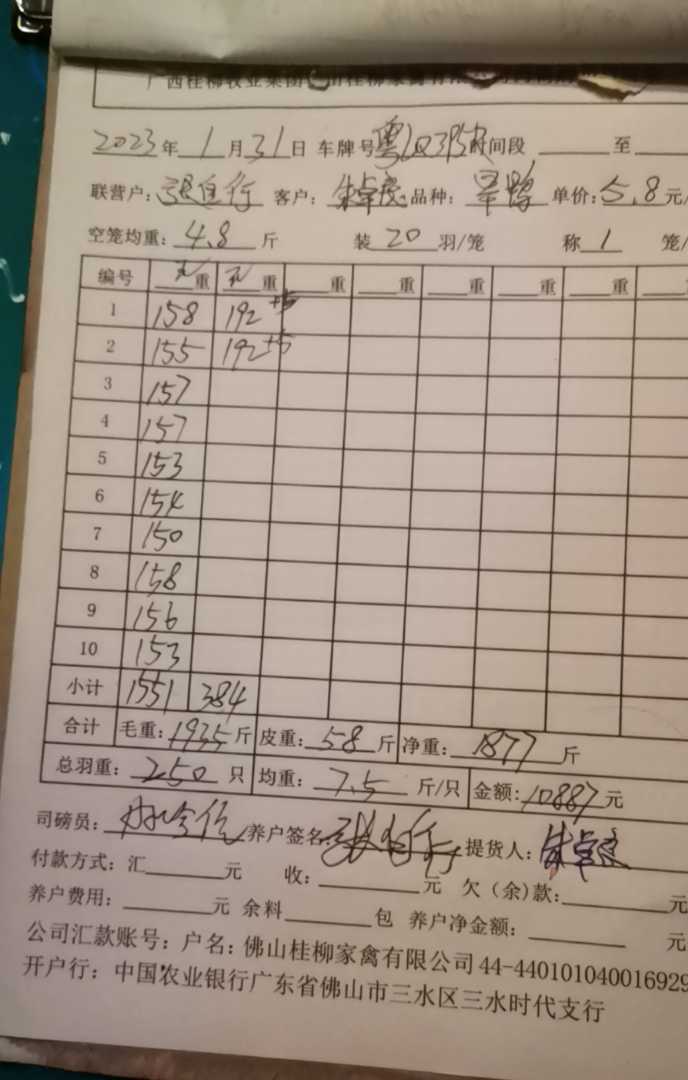 2023年 1月31日 车牌号 时间段 至
联营户: 客户: 品种: 单价:5.8元/
空笼均重:4.8斤 装20羽/笼 称1笼/
编号 毛重 毛重 重 重 重 重 重
1 158 192+5
2 155 192+5
3 157
4 157
5 153
6 154
7 150
8 158
9 156
10 153
小计 1551 384
合计 毛重:1935斤 皮重:58斤 净重:1877斤
总羽重:250只 均重:7.5斤/只 金额:10887元
司磅员: 养户签名: 提货人:
付款方式:汇 元 收: 元 欠(余)款: 元
养户费用: 元 余料 包 养户净金额: 元
公司汇款账号:户名:佛山桂柳家禽有限公司 44-440101040016929
开户行:中国农业银行广东省佛山市三水区三水时代支行